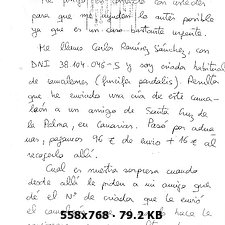 me pongo en contacto con ustedes
para que me ayudan lo antes posible
ya que es un caso bastante urgente.
Me llamo Carlos Ramírez Sánchez, con
DNI 38.104.096-S y soy criador habitual
de camaleones (furcifer pardalis). Resulta
que he enviado una cría de este cama-
león a un amigo de Santa Cruz de
la Palma, en Canarias. Pasó por adua-
nas, pagamos 96 € de envío + 16 € al
recogerlo allá.
Cual es nuestra sorpresa cuando
desde allá le piden a mi amigo que
dé el Nº de criador que le envió
el camaleón hace
558x768 - 79.2 KB